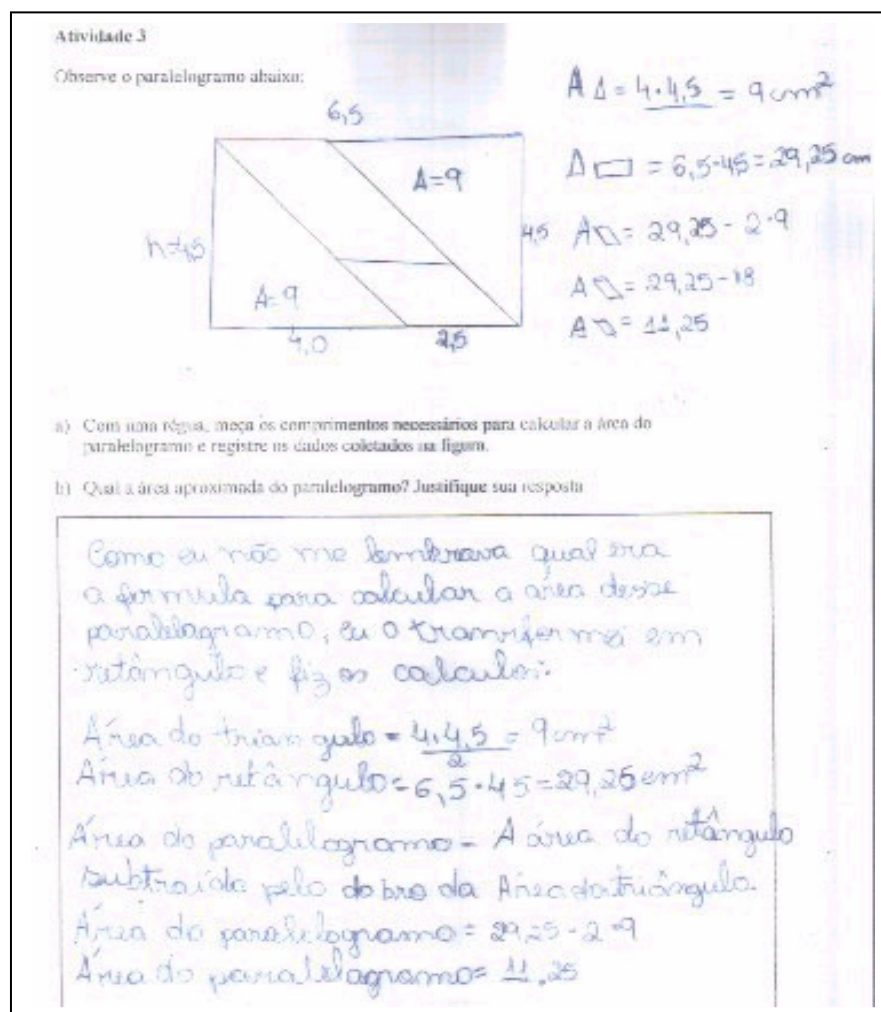 Atividade 3
Observe o paralelogramo abaixo:
6,5
A=9
h=4,5
4,5
A=9
4,0
2,5
A △ = 4·4,5 = 9 cm²
A ▭ = 6,5·45 = 29,25 cm
A ▱ = 29,25 - 2·9
A ▱ = 29,25 - 18
A ▱ = 11,25
a) Com uma régua, meça os comprimentos necessários para calcular a área do
paralelogramo e registre os dados coletados na figura.
b) Qual a área aproximada do paralelogramo? Justifique sua resposta
Como eu não me lembrava qual era
a formula para calcular a área desse
paralelogramo, eu o transformei em
retângulo e fiz os calculos:
Área do triangulo = 4.4,5 = 9 cm²
2
Área do retângulo = 6,5.45 = 29,25 cm²
Área do paralelogramo = A área do retângulo
subtraída pelo dobro da Área do triângulo.
Área do paralelogramo = 29,25 - 2·9
Área do paralelogramo = 11,25